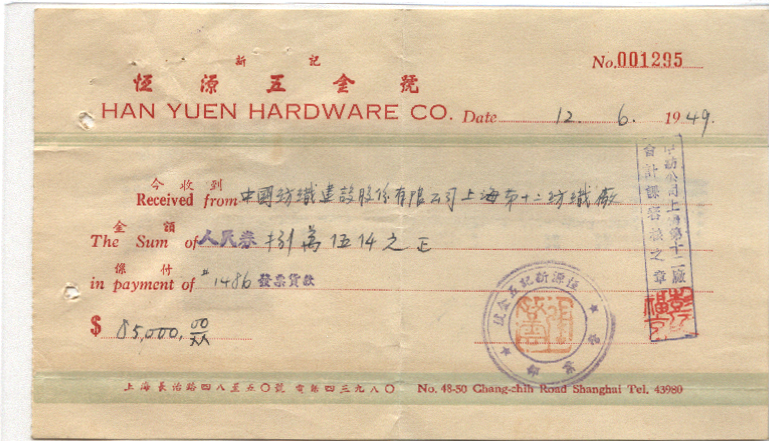 新 記
恆 源 五 金 號
No. 001295
HAN YUEN HARDWARE CO. Date 12. 6. 1949.
今收到
Received from 中國紡織建設股份有限公司上海第十二紡織廠
金額
The Sum of 人民券 捌萬伍仟之正
課付
in payment of #1486 發票貨款
$ 85,000.00
中紡公司上海第十二廠
會計課審核之章
恆源新記五金號
上海長治路四八至五〇號 電話四三九八〇 No. 48-50 Chang-chih Road Shanghai Tel. 43980